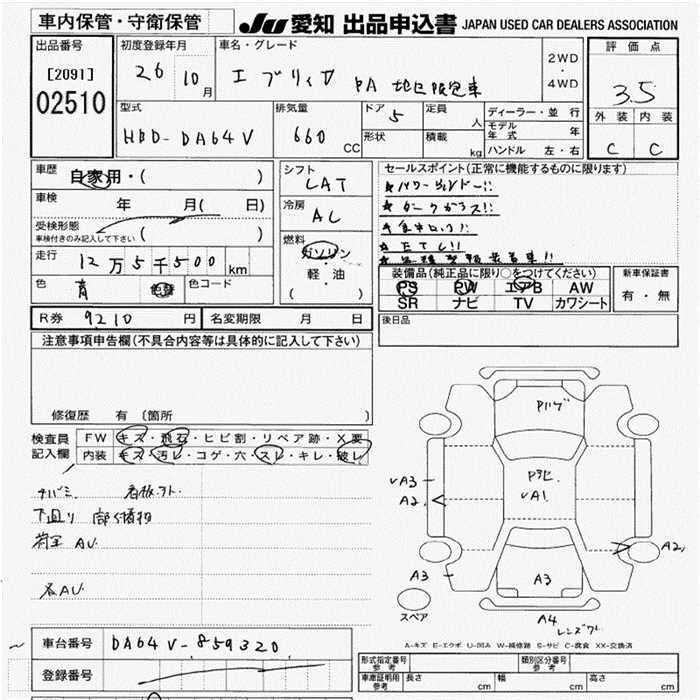 車内保管・守衛保管
JU 愛知 出品申込書 JAPAN USED CAR DEALERS ASSOCIATION
出品番号
[2091]
02510
初度登録年月
26 10月
車名・グレード
エブリイV PA 地区限定車
2WD・4WD
評価点
3.5
外装 内装
C C
型式
HBD-DA64V
排気量
660 CC
ドア 5
形状
定員 人
積載 kg
ディーラー・並行
モデル年式 年
ハンドル 左・右
車歴
自家用・( )
車検 年 月( 日)
受検形態
車検付きのみ記入して下さい ( )
走行 12万5千500 km
色 青 色替 色コード
シフト
LAT
冷房
AC
燃料
ガソリン・軽・油
( )
セールスポイント(正常に機能するものに限ります)
★パワーウィンドー!!
★ETC!!
装備品(純正品に限り○をつけてください)
PS PW エアB AW
SR ナビ TV カワシート
新車保証書
有・無
R券 9210 円 名変期限 月 日
後日品
注意事項申告欄(不具合内容等は具体的に記入して下さい)
修復歴 有(箇所 )
検査員記入欄
FW キズ・飛石・ヒビ割・リペア跡・X要
内装 キズ・汚レ・コゲ・穴・スレ・キレ・破レ
看板アト
下廻り
荷室 AU
各AU
Pいげ
VA1
VA3
A2
A2
A3
A3
A4
スペア
レンズワレ
A-キズ E-エクボ U-凹み W-補修跡 S-サビ C-腐食 XX-交換済
車台番号 DA64V-859320
登録番号
形式指定番号 参考
類別区分番号 参考
車庫証明用 参考 長さ cm 幅 cm 高さ cm